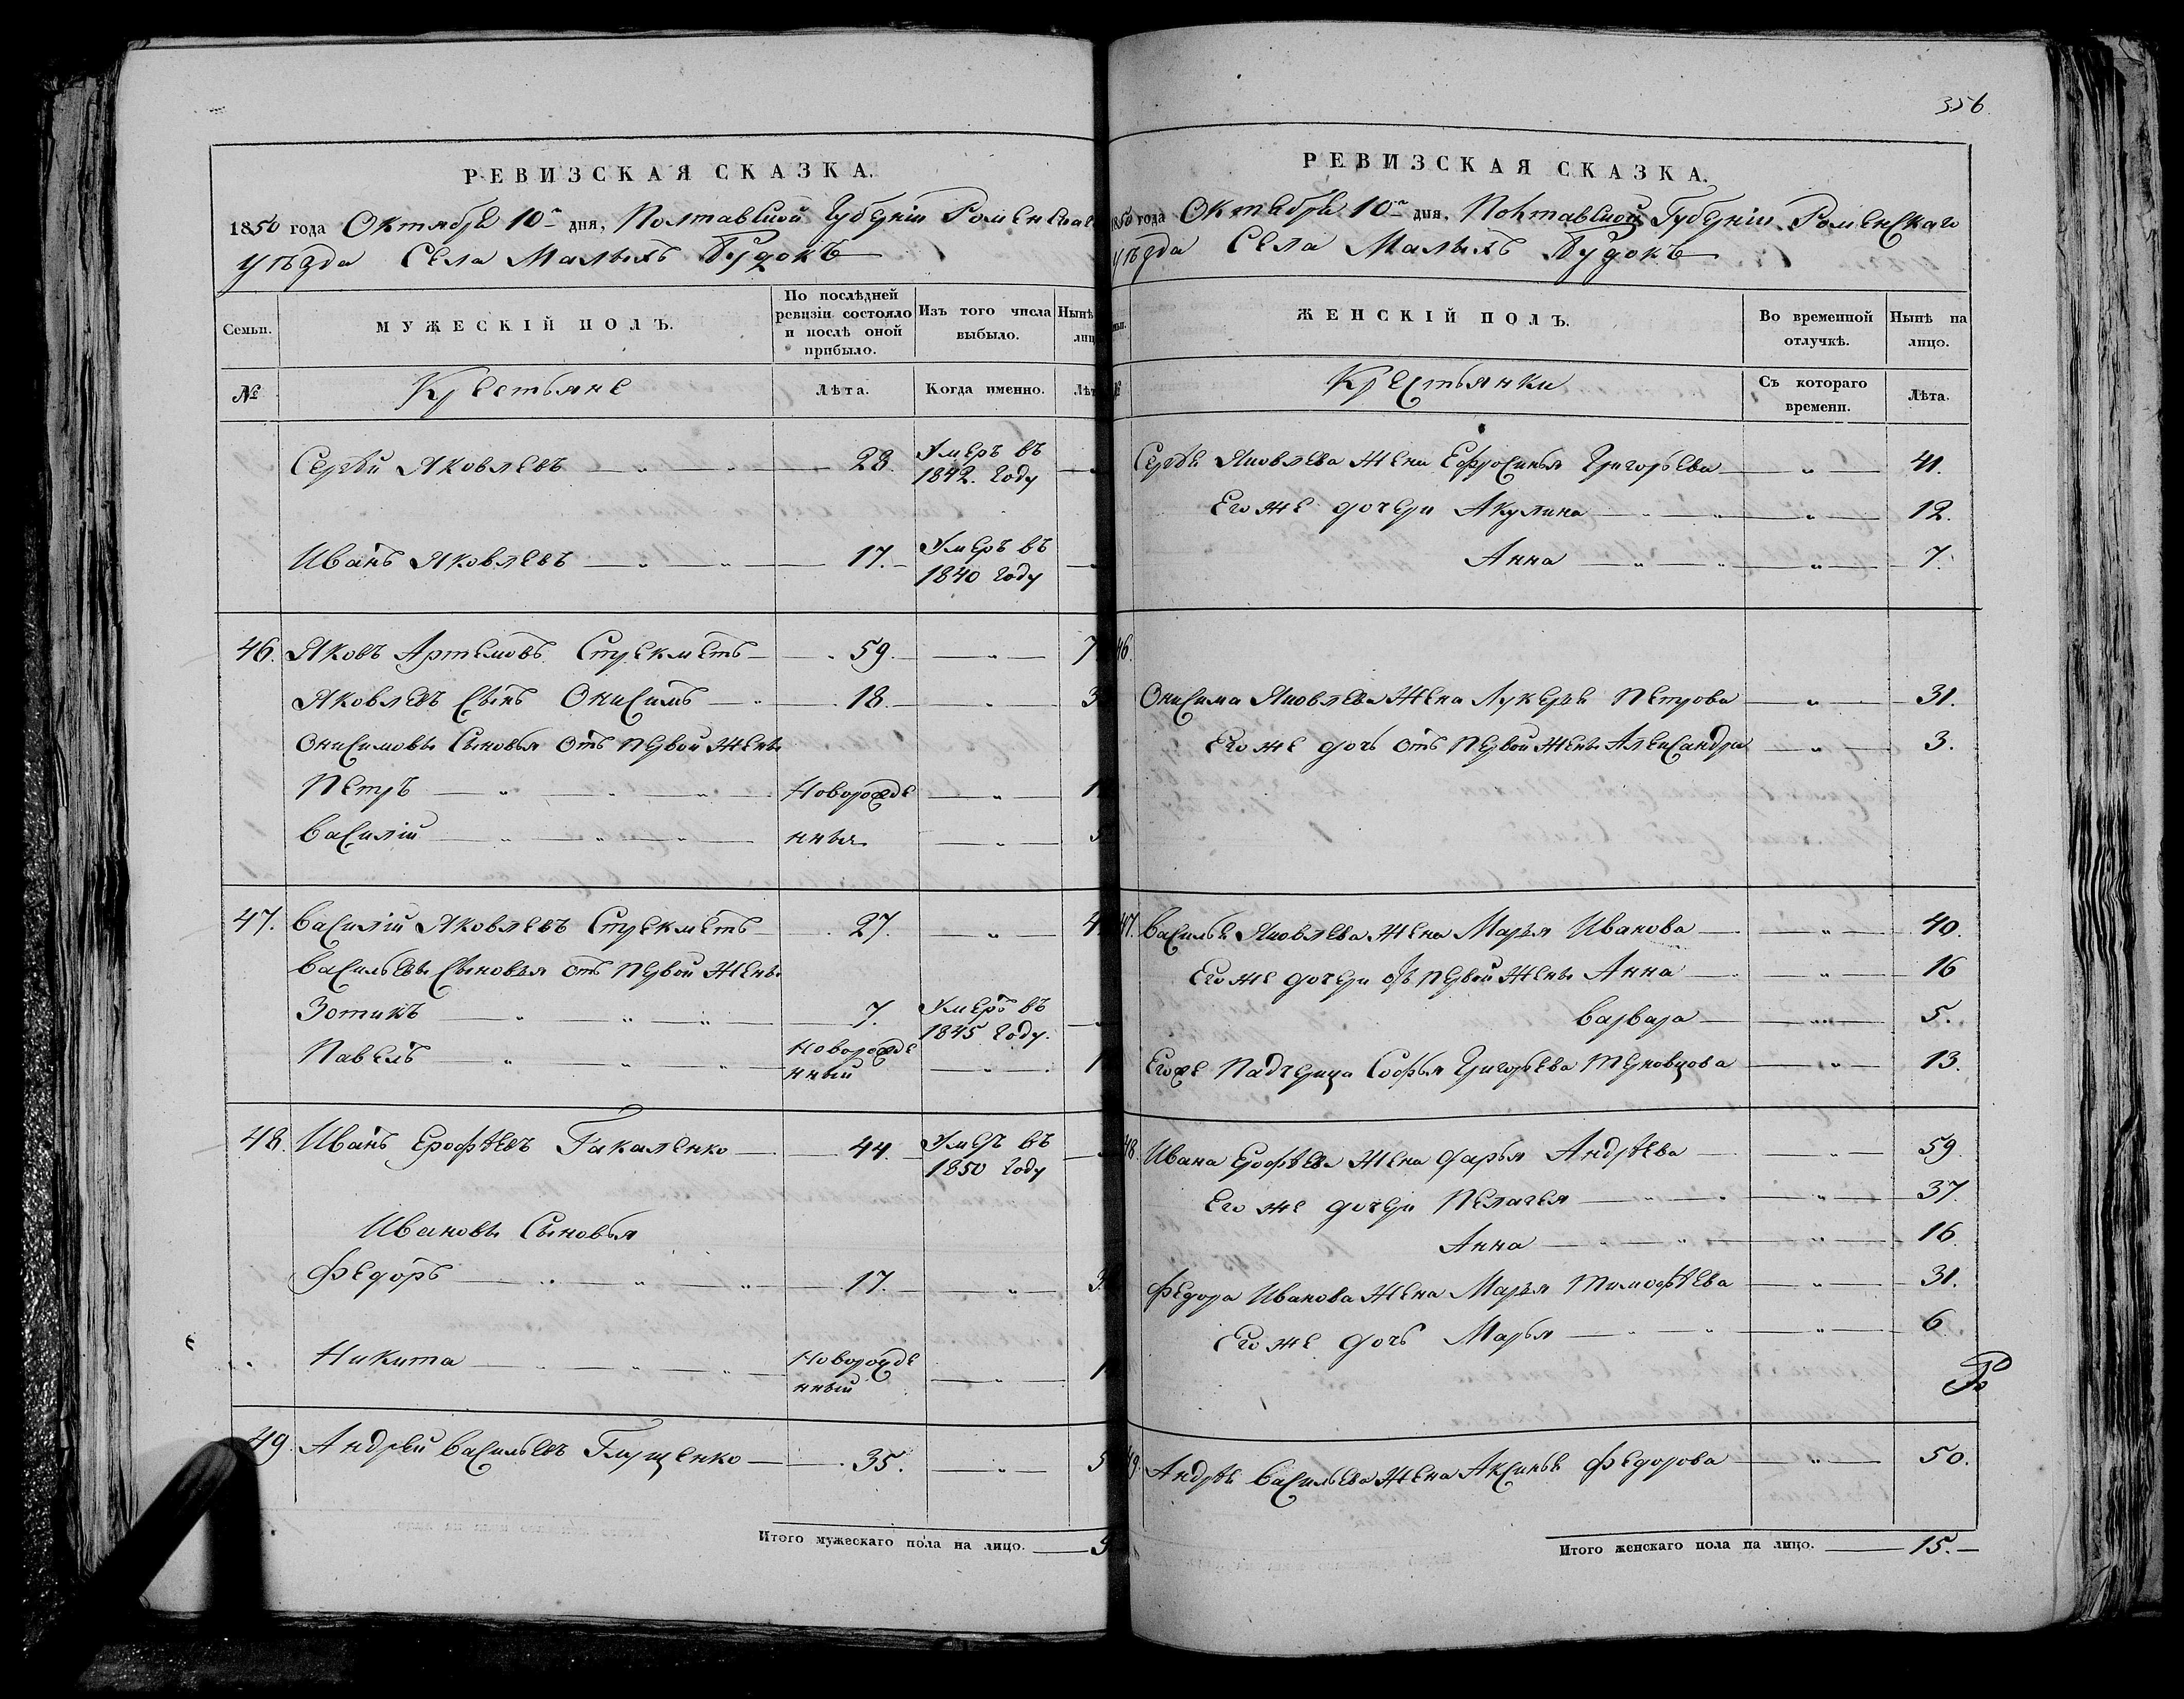 РЕВИЗСКАЯ СКАЗКА.
1850 года Октября 10го дня, Полтавской Губерніи Роменскаго
уѣзда Села Малыхъ Будокъ
Семьи. МУЖЕСКІЙ ПОЛЪ. По послѣдней ревизіи состояло и послѣ оной прибыло. Изъ того числа выбыло. Нынѣ
№ Крестьяне Лѣта. Когда именно.
Сергѣй Яковлевъ 28. Умеръ въ 1842. году
Иванъ Яковлевъ 17. Умеръ въ 1840 году
46. Яковъ Артемовъ 59
Яковлевъ Сынъ Онисимъ 18
Онисимовы Сыновья отъ первой жены
Петръ Новорожде
Василій нныя
47. Василій Яковлевъ 27.
Васильевы Сыновья отъ первой жены
Зотикъ 7. Умеръ въ 1845 году.
Павелъ Новорожде нный
48. Иванъ Ерофѣевъ Гакаленко 44 Умеръ въ 1850 году
Ивановы Сыновья
Федоръ 17.
Никита Новорожде нный
49. Андрей Васильевъ Глущенко 35.
Итого мужескаго пола на лицо.
356
РЕВИЗСКАЯ СКАЗКА.
1850 года Октября 10го дня, Полтавской Губерніи Роменскаго
уѣзда Села Малыхъ Будокъ
ЖЕНСКІЙ ПОЛЪ. Во временной отлучкѣ. Нынѣ на лицо.
№ Крестьянки Съ котораго времени. Лѣта.
Сергѣя Яковлева жена Ефросинья Григорьева 41.
Его же дочери Акулина 12.
Анна 7.
46.
Онисима Яковлева жена Лукерья Петрова 31.
Его же дочь отъ первой жены Александра 3.
47. Василья Яковлева жена Марья Иванова 40.
Его же дочери отъ первой жены Анна 16
Варвара 5.
Его же Падчерица Софья Григорьева 13.
48. Ивана Ерофѣева жена Дарья Андрѣева 59.
Его же дочери Пелагея 37.
Анна 16
Федора Иванова жена Марья Тимофѣева 31.
Его же дочь Марья 6
49. Андрѣя Васильева жена Аксинья Федорова 50.
Итого женскаго пола на лицо. 15.